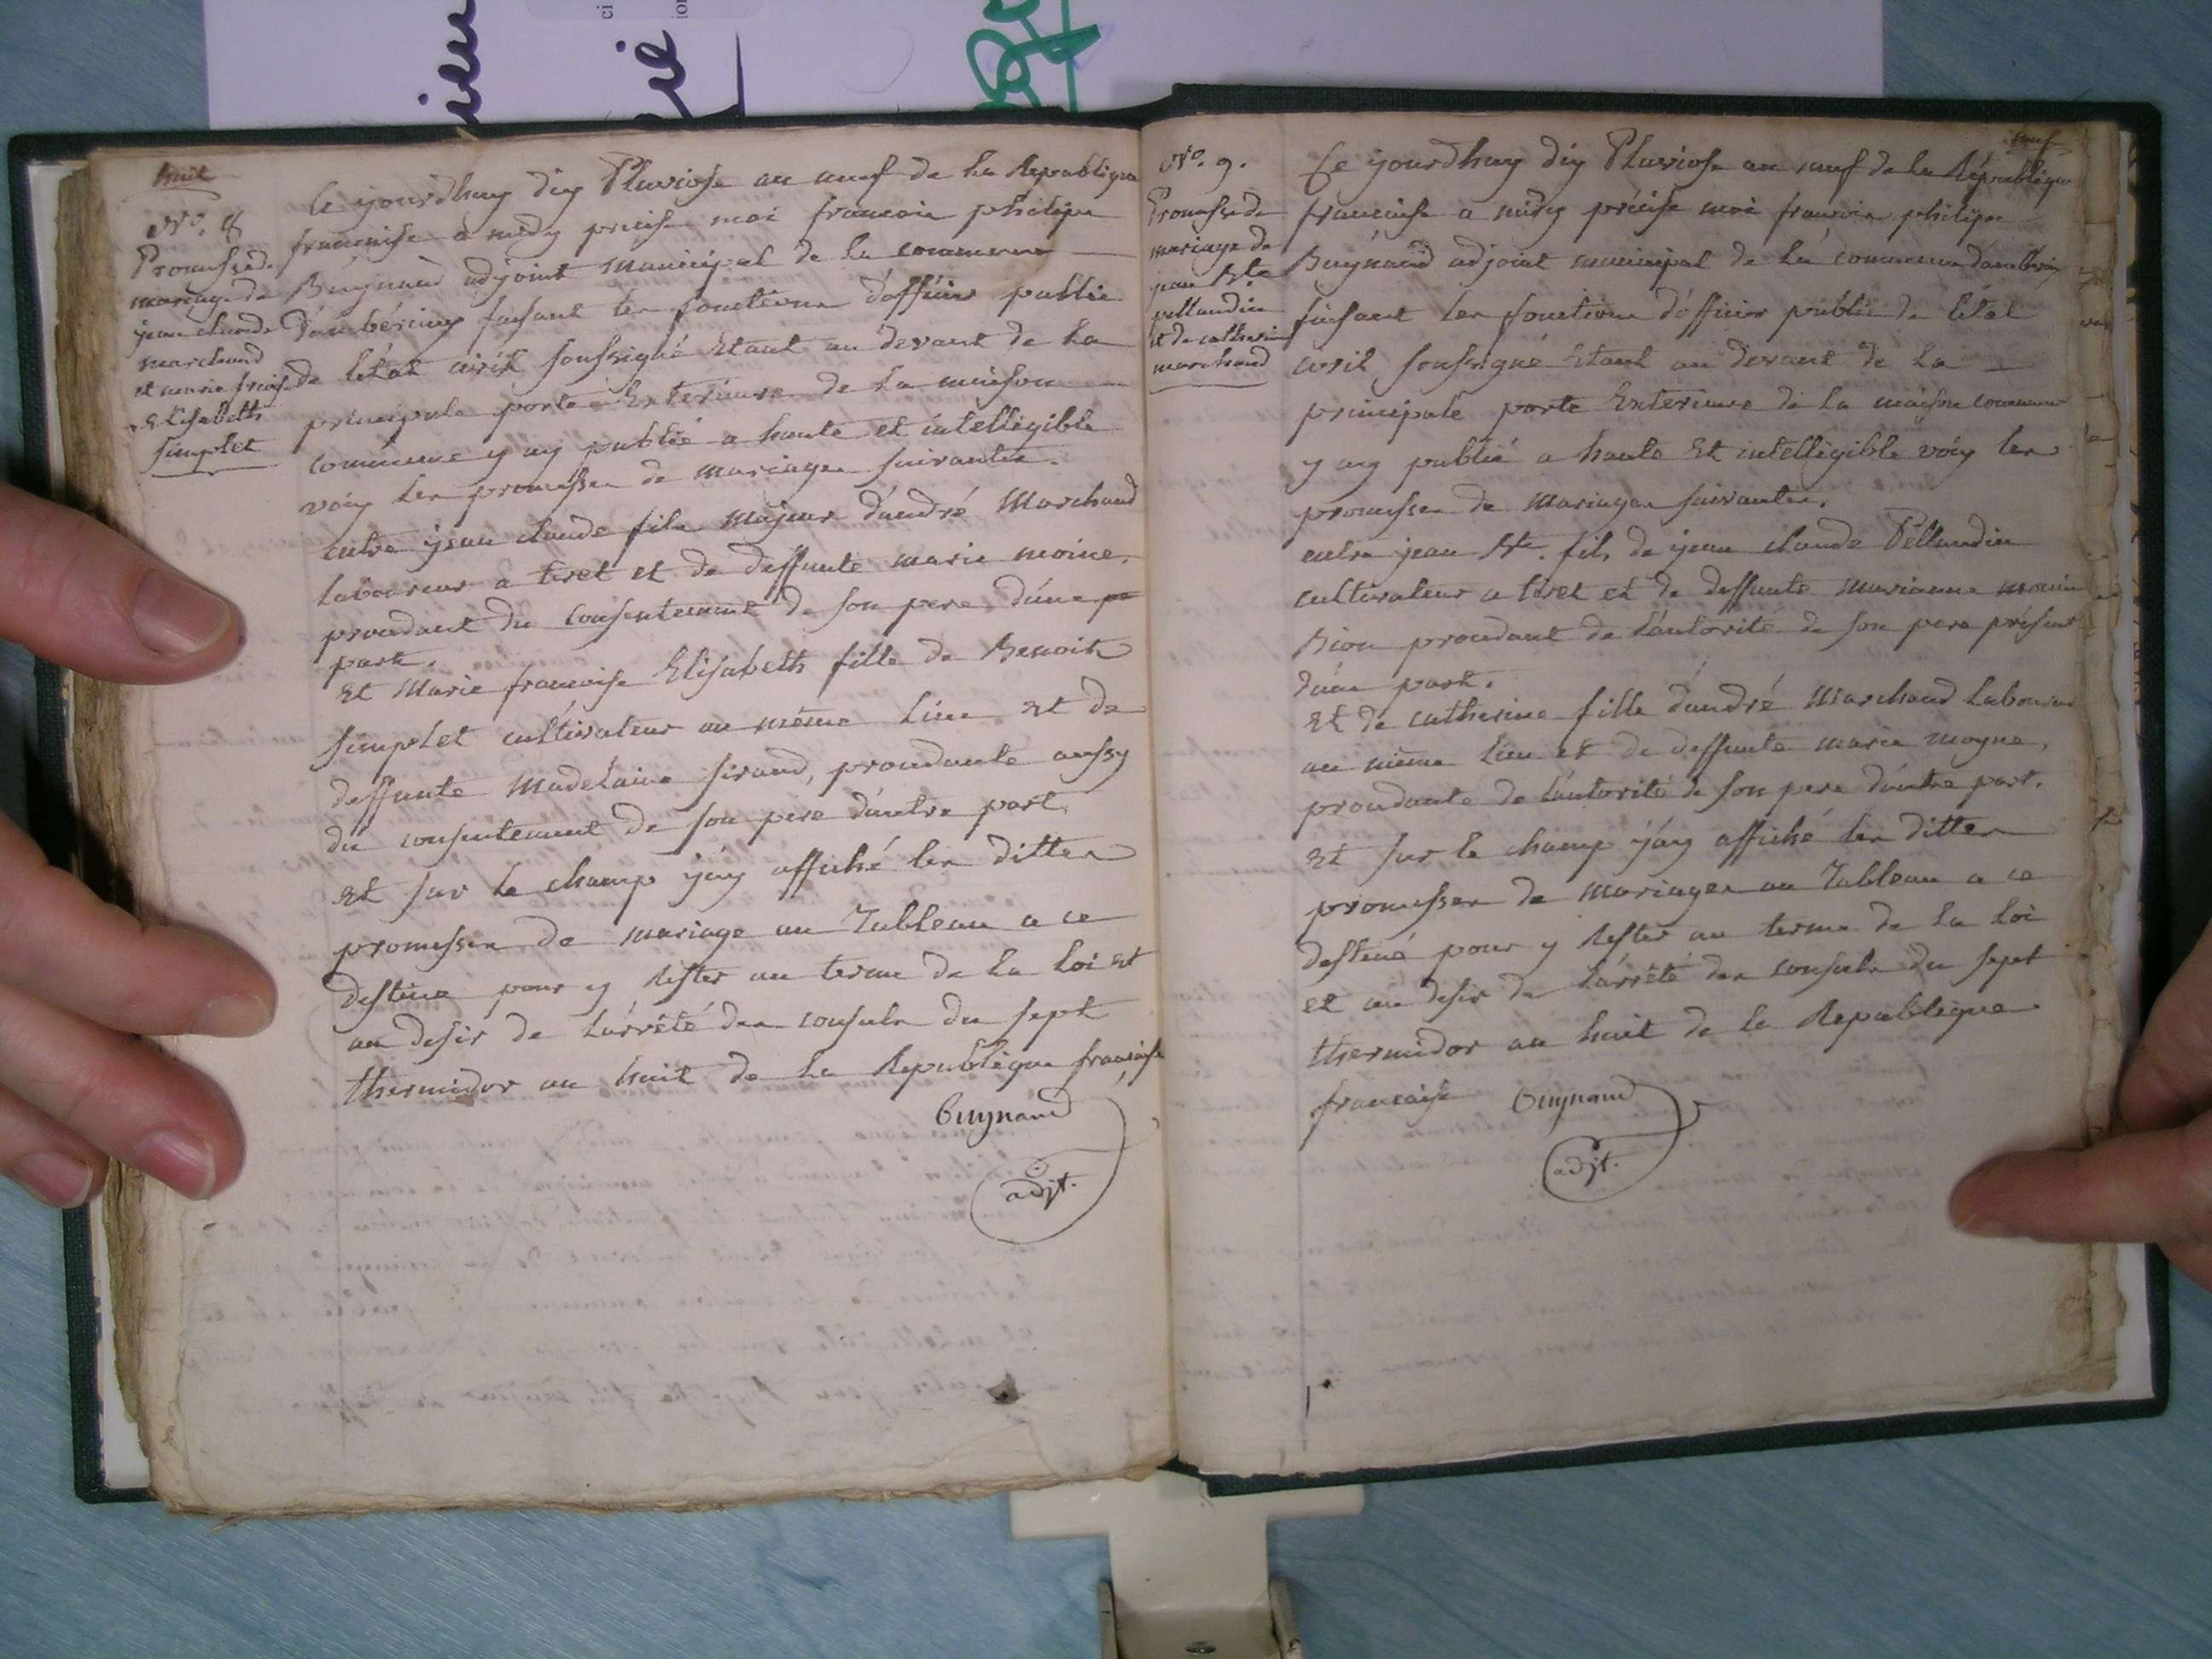 huit
N°. 8
Promesse de
mariage de
jean claude
marchand
et marie froise
Elisabeth
simplet
Ce yourdhuy dix Pluviose an neuf de la Republique
francaise a midy precise moi francois philipe
Buynand adjoint municipal de la commune
d'ambérieux faisant les fonctions d'officier public
de l'état civil soussigné Etant au devant de la
principale porte Exterieure de la maison
commune y ay publié a haute et intelligible
voix les promesses de mariages suivantes.
entre jean claude fils majeur d'andré Marchand
laboureur a tiret et de deffunte marie moine,
procedant du consentement de son pere d'une
part.
Et Marie francoise Elisabeth fille de Benoit
simplet cultivateur au même Lieu et de
deffunte Madelaine sirand, procedante aussy
du consentement de son pere d'autre part
Et sur le champ j'ay affiché les dittes
promesses de mariage au Tableau a ce
destiné pour y Rester au terme de la loi et
au desir de l'arrêté des consuls du sept
thermidor an huit de la Republique francaise
Buynand
adjt.
neuf
N°. 9.
Promesse de
mariage de
jean Bte
pellaudin
et de catherine
marchand
Ce yourdhuy dix Pluviose an neuf de la République
francaise a midy précise moi francois philipe
Buynand adjoint municipal de la commune d'ambérieux
faisant les fonctions d'officier public de l'état
civil soussigné Etant au devant de la
principale porte Exterieure de la maison commune
y ay publié a haute Et intelligible voix les
promesses de Mariages suivantes.
entre jean Bte. fils de jean claude Pellaudin
cultivateur a tiret et de deffunte Marianne
Bion procedant de l'autorité de son pere présent
d'une part.
Et de catherine fille d'andré Marchand Laboureur
au même Lieu et de deffunte marie moyne,
procedante de l'autorité de son pere d'autre part.
Et sur le champ j'ay affiché les dittes
promesses de mariages au Tableau a ce
destiné pour y Rester au terme de la loi
et au desir de l'arrêté des consuls du sept
thermidor an huit de la Republique
francaise Buynand
adjt.